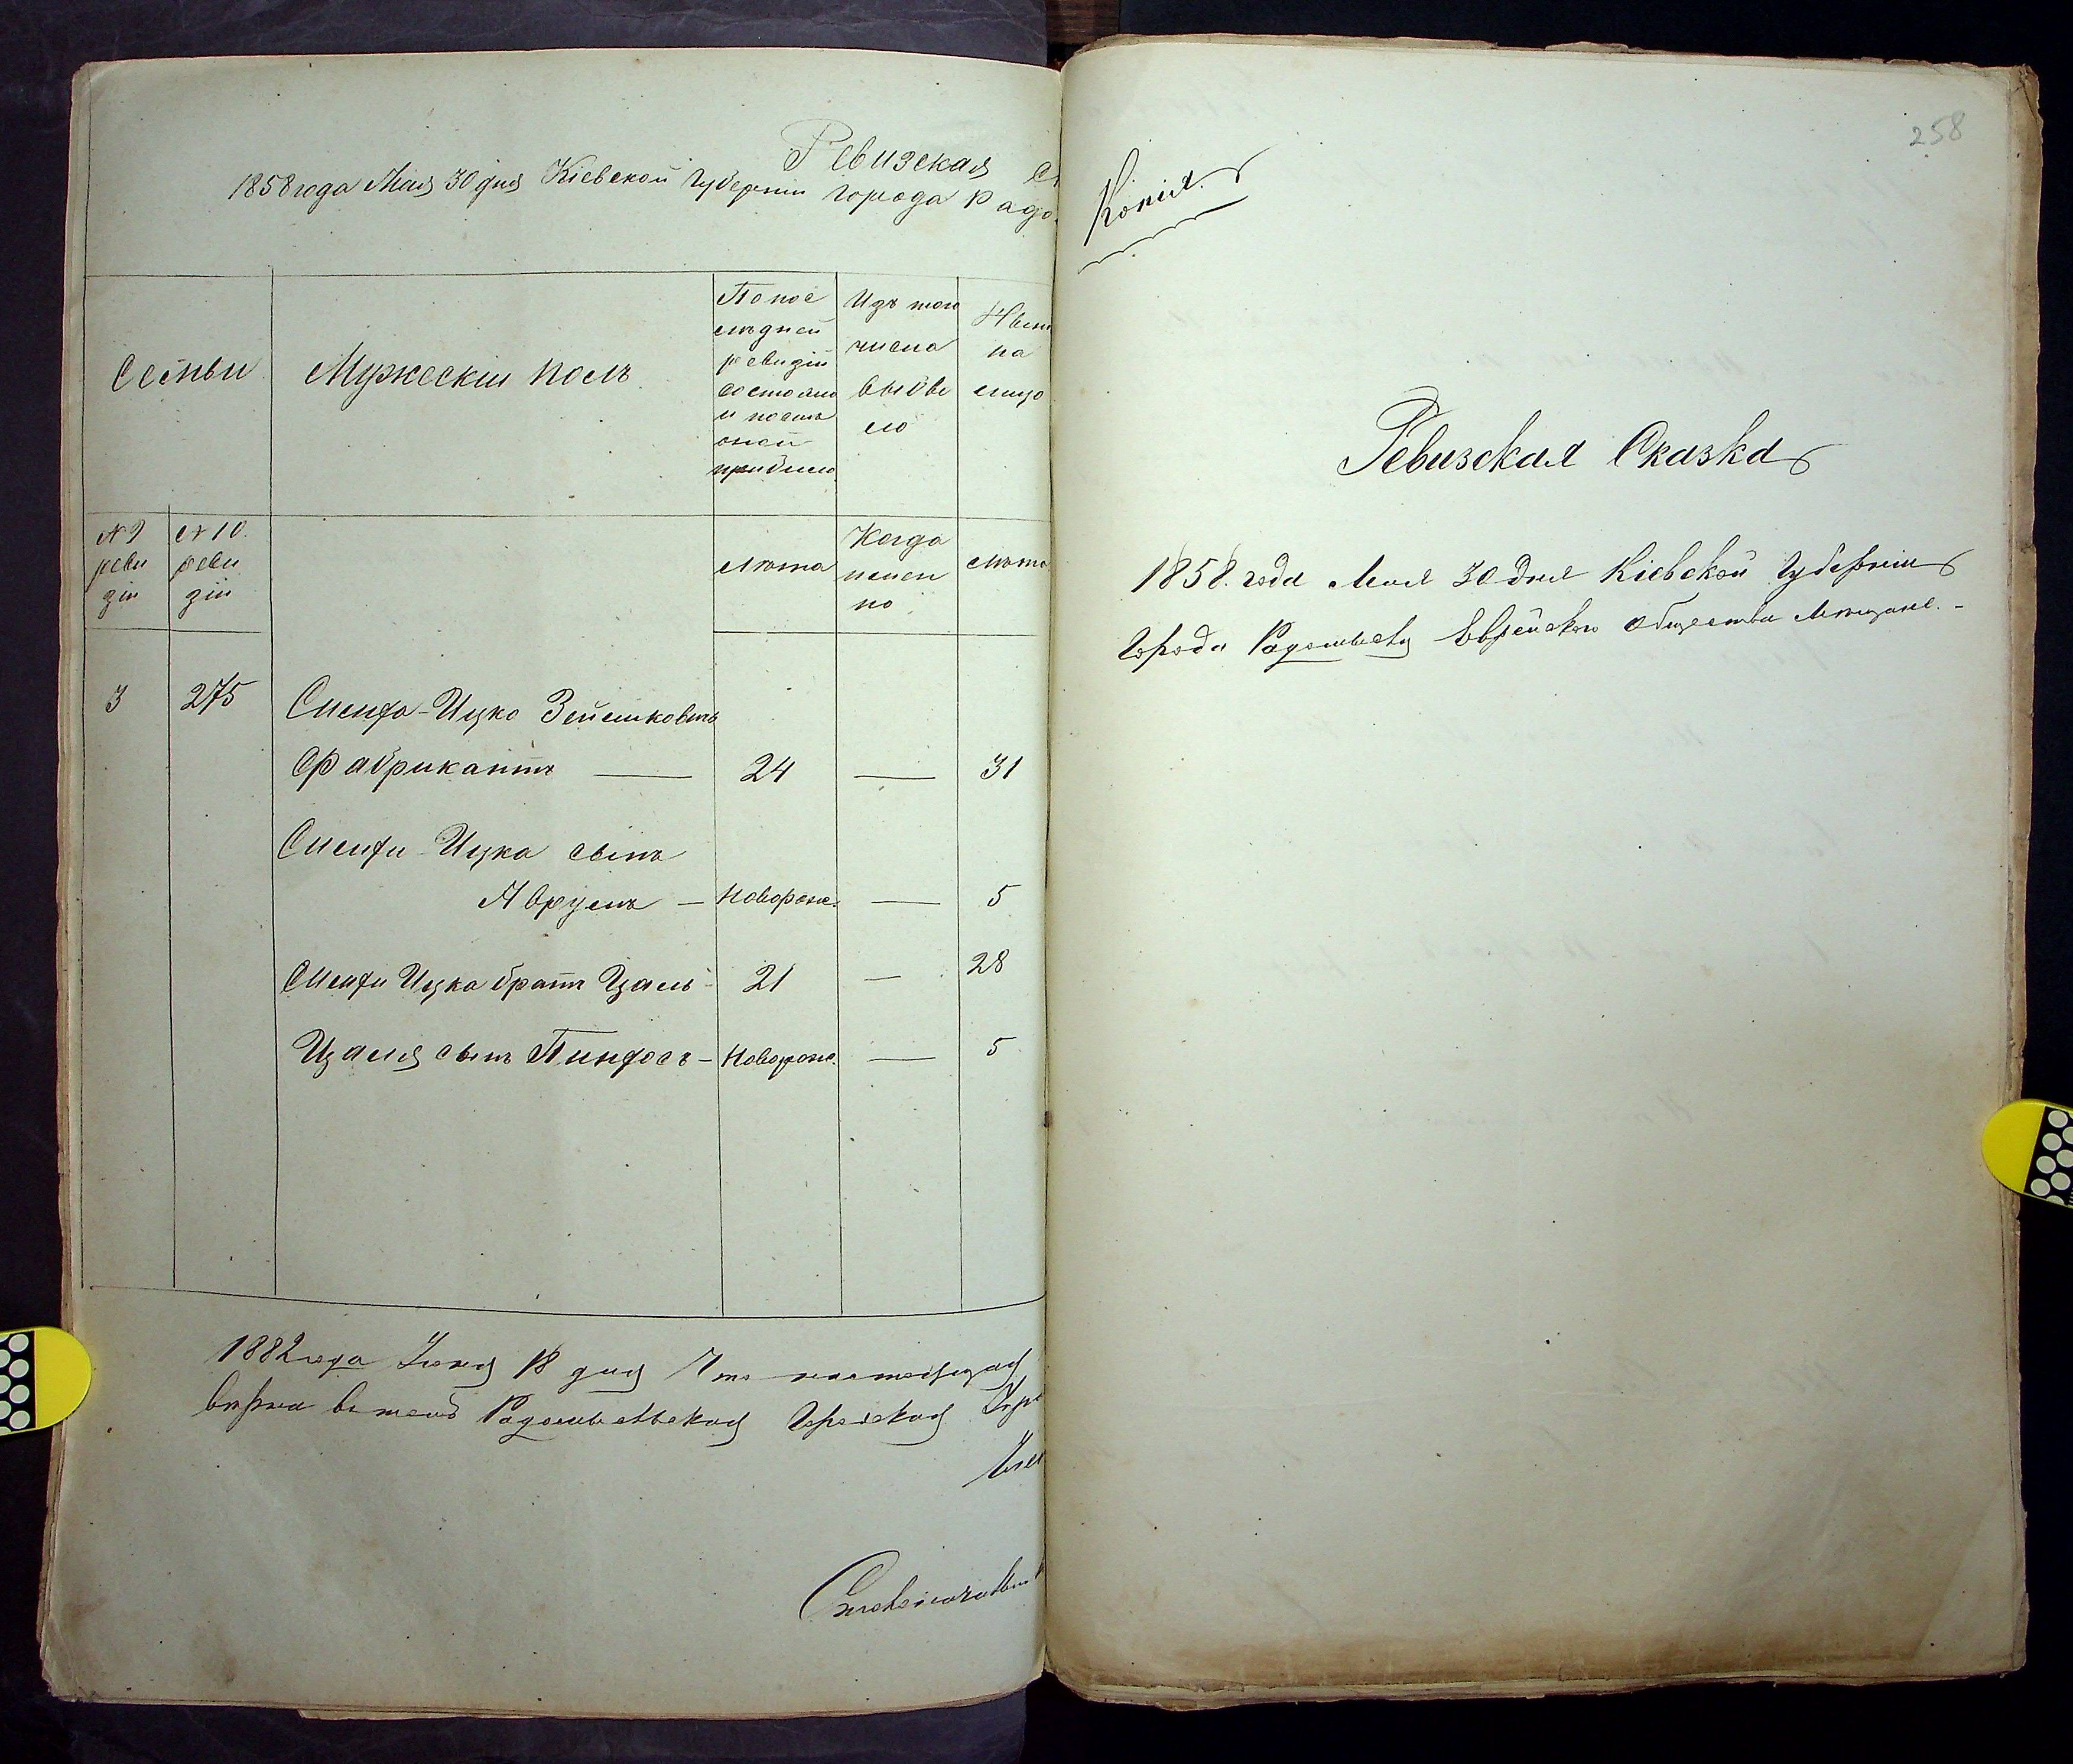 Ревизская
1858 года Мая 30 дня Кіевской Губерніи города Радо
Семьи
Мужескій полъ
По пос
лѣдней
ревизіи
состояло
и послѣ
оной
прибыло
Изъ того
числа
выбы
ло
Нынѣ
на
лицо
№ 9
реви
зіи
№ 10.
реви
зіи
лѣта
Когда
имен
но
лѣта
3 275 -Ицко
Фабрикантъ — 24 — 31
Ицка сынъ
Аврумъ — Новорож. — 5
Ицка братъ Цаль - 21 — 28
Цаля сынъ Пинхосъ - Новорож. — 5
1882 года Іюня 18 дня Что настоящая
вѣрна въ томъ Радомысльская Городская Упр
258
Копія.
Ревизская Сказка
1858. года Мая 30 дня Кіевской Губерніи
Города Радомысля Еврейскаго общества Мѣщане. -